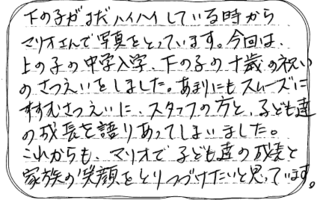 下の子がまだハイハイしている時から
マリオさんで写真をとっています。今回は、
上の子の中学入学、下の子の十歳の祝い
のさつえいをしました。あまりにもスムーズに
すすむさつえいに、スタッフの方と、子ども達
の成長を語りあってしまいました。
これからも、マリオで子ども達の成長と
家族の笑顔をとりつづけたいと思っています。